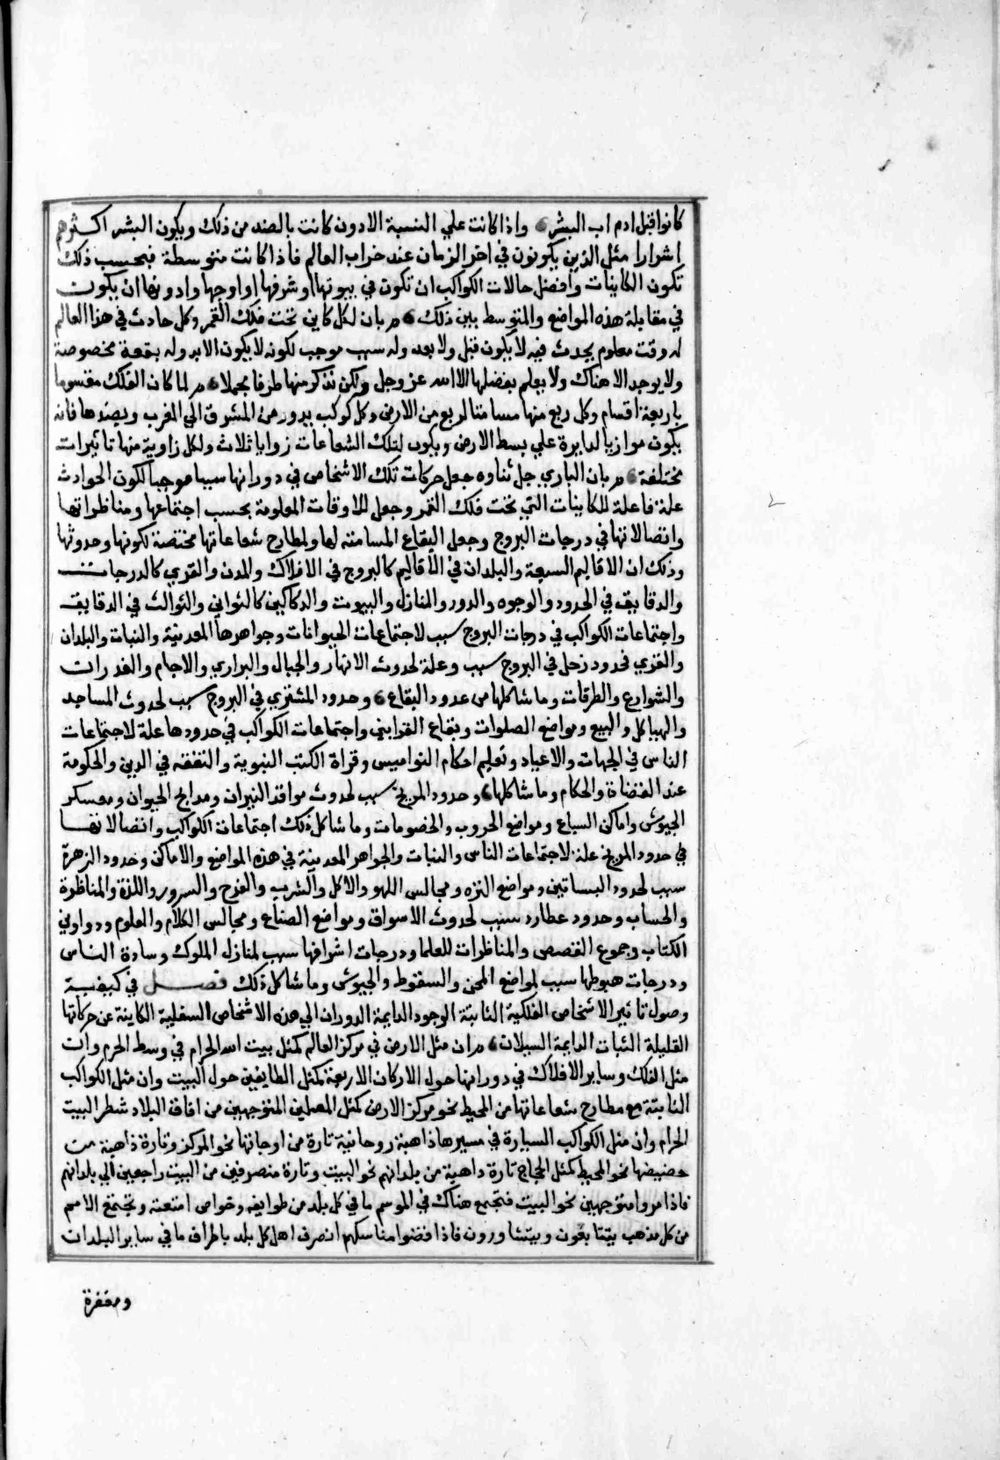 كانوا قبل ادم اب البشر واذا كانت علي النسبة الادون كانت بالضد من ذلك ويكون البشر اكثرهم
اشرارا مثل الذين يكونون في اخر الزمان عند خراب العالم فاذا كانت متوسطة فبحسب ذلك
تكون الكاينات وافضل حالات الكواكب ان تكون في بيوتها او شرفها او اوجها وادونها ان يكون
في مقابلة هذه المواضع والمتوسط بين ذلك بان لكل كاين تحت فلك القمر وكل حادث في هذا العالم
له وقت معلوم يحدث فيه لا يكون قبل ولا بعد وله سبب موجب لكونه لا يكون الا به وله بقعة مخصوصة
ولا يوجد الا هناك ولا يعلم بفضلها الا الله عز وجل ولكن نذكر منها طرفا مجملا لما كان الفلك مقسوما
باربعة اقسام وكل ربع منها مسامتا لربع من الارض وكل كوكب يدور من المشرق الي المغرب وبضدها فانه
يكون موازيا لدايرة علي بسط الارض ويكون لتلك الشعاعات زوايا ثلاث ولكل زاوية منها تاثيرات
مختلفة بان الباري جل ثناوه جعل حركات تلك الاشخاص في دورانها سببا موجبا لكون الحوادث
علة فاعلة للكاينات التي تحت فلك القمر وجعل للاوقات المعلومة بحسب اجتماعها ومناظراتها
واتصالاتها في درجات البروج وجعل البقاع المسامته لها ولمطارح شعاعاتها مختصة لكونها وحدوثها
وذلك ان الاقاليم السبعة والبلدان في الاقاليم كالبروج في الافلاك والمدن والقري كالدرجات
والدقايق في الحدود والوجوه والدور والمنازل والبيوت والدكاكين كالثواني والثوالث في الدقايق
واجتماعات الكواكب في درجات البروج سبب لاجتماعات الحيوانات وجواهرها المعدنية والنبات والبلدان
والقري فحدود زحل في البروج سبب وعلة لحدوث الانهار والجبال والبراري والاجام والغدرات
والشوارع والطرقات وما شاكلها من حدود البقاع وحدود المشتري في البروج سبب لحدوث المساجد
والهياكل والبيع ومواضع الصلوات وبقاع القرابين واجتماعات الكواكب في حدودها علة لاجتماعات
الناس في الجهات والاعياد وتعليم احكام النواميس وقراة الكتب النبوية والتفقه في الدين والحكومة
عند القضاة والحكام وما شاكلها وحدود المريخ سبب لحدوث مواقد النيران ومدابح الحيوان ومعسكر
الجيوش واماكن السباع ومواضع الحروب والخصومات وما شاكل ذلك اجتماعات الكواكب واتصالاتها
في حدود المريخ علة لاجتماعات الناس والنبات والجواهر المعدنية في هذه المواضع والاماكن وحدود الزهرة
سبب لحدود البساتين ومواضع النزه ومجالس اللهو والاكل والشرب والفرح والسرور واللذة والمناظرة
والحساب وحدود عطارد سبب لحدوث الاسواق ومواضع الصناع ومجالس الكلام والعلوم ودواوين
الكتاب وجموع القصص والمناظرات للعلما ودرجات اشرافها سبب لمنازل الملوك وسادة الناس
ودرجات هبوطها سبب لمواضع المحن والسقوط والجيوش وما شاكل ذلك فصل في كيفية
وصول تاثير الاشخاص الفلكية الثابتة الوجود الدايمة الدوران الي هذه الاشخاص السفلية الكاينة عن حركاتها
القليلة الثبات الدايمة السيلان ان مثل الارض في مركز العالم كمثل بيت الله الحرام في وسط الحرم وان
مثل الفلك وساير الافلاك في دورانها حول الاركان الاربعة كمثل الطايفين حول البيت وان مثل الكواكب
الثابتة مع مطارح شعاعاتها من المحيط نحو مركز الارض كمثل المصلين المتوجهين من افاق البلاد شطر البيت
الحرام وان مثل الكواكب السيارة في مسيرها ذاهبة روحانية تارة من اوجاتها نحو المركز وتارة ذاهبة من
حضيضها نحو المحيط كمثل الحجاج تارة داهبة من بلدانهم نحو البيت وتارة منصرفين من البيت راجعين الي بلدانهم
فاذا مروا متوجهين نحو البيت فتجمع هناك في الموسم ما في كل بلد من طوايف وخواص امتعته وتجتمع الامم
من كل مذهب يتتابعون ويتشاورون فاذا قضوا مناسكهم انصرف اهل كل بلد باطراف ما في ساير البلدان
ومغفرة